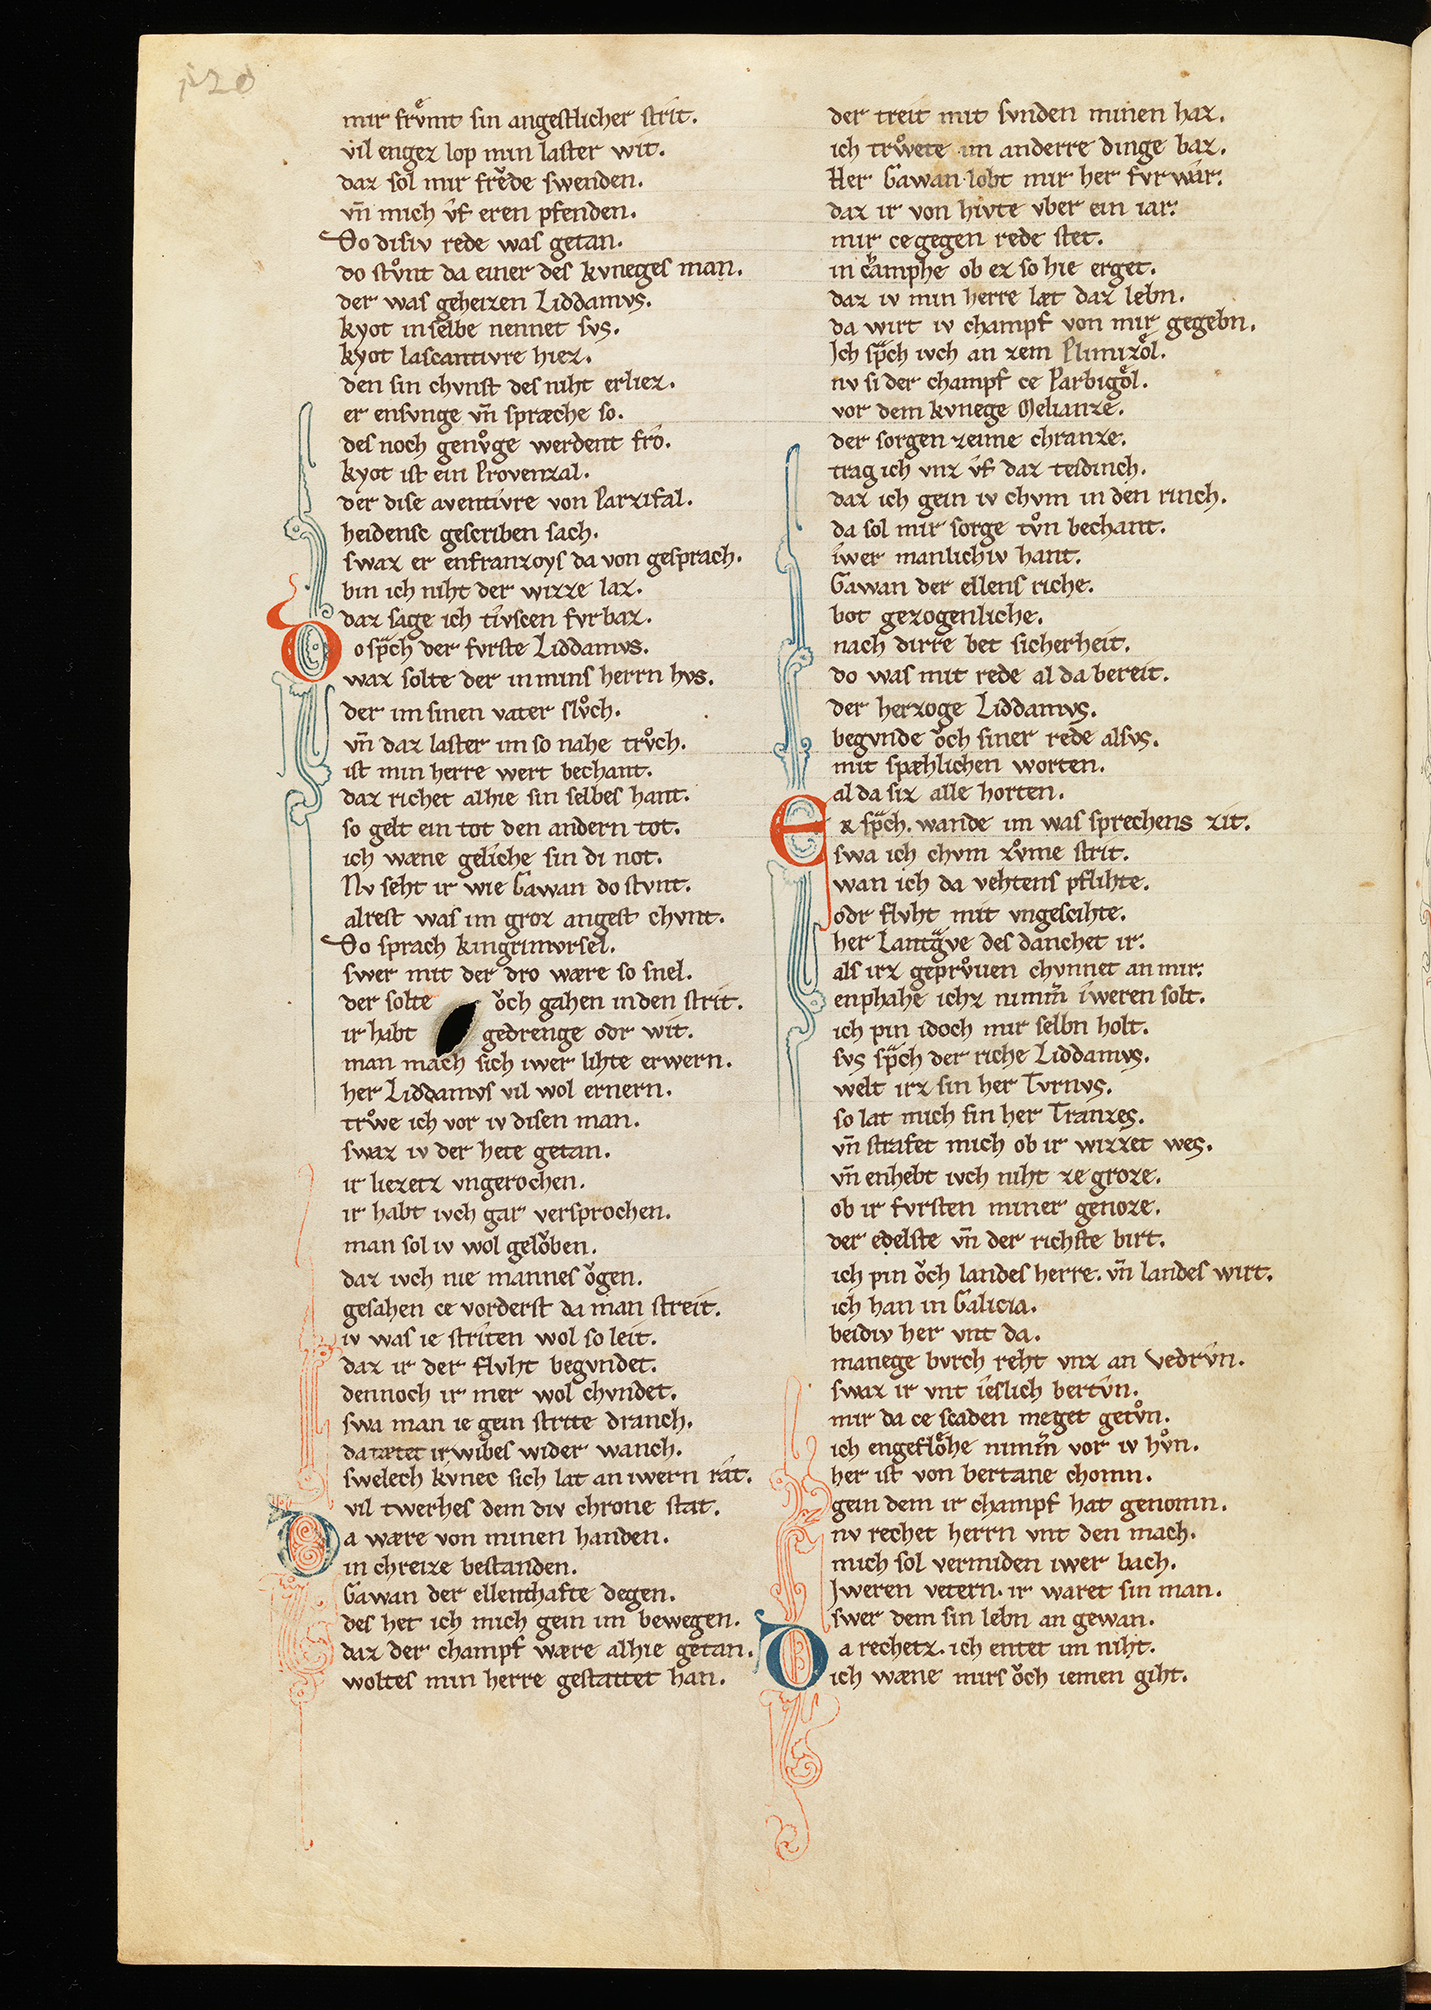 120
mir frv̊mt sin angestlicher strit.
vil enger lop min laster wit.
daz sol mir frevde swenden.
vn̄ mich v̂f eren pfenden.
Do disiv rede was getan.
do stv̊nt da einer des kvneges man.
der was geheizen Liddamvs.
kyot in selbe nennet svs.
kyot lascantivre hiez.
den sin chvnst des niht erliez.
er ensvnge vn̄ spræche so.
des noch genv̊ge werdent fro.
kyot ist ein Provenzal.
der dise aventivre von Parzifal.
heidensc gescriben sach.
swaz er enfranzoys da von gesprach.
bin ich niht der wizze laz.
daz sage ich tîvscen fvrbaz.
Do spͣch der fvrste Liddamvs.
waz solte der in mins herrn hvs.
der im sinen vater slv̊ch.
vn̄ daz laster im so nahe trv̊ch.
ist min herre wert bechant.
daz richet alhie sin selbes hant.
so gelt ein tot den andern tot.
ich wæne gelîche sin di not.
Nv seht ir wie Gawan do stvnt.
alrest was im groz angest chvnt.
Do sprach kingrimvrsel.
swer mit der dro wære so snel.
der solte ŏch gahen in den strit.
ir habt gedrenge odr wit.
man mach sich iwer lihte erwern.
her Liddamvs vil wol ernern.
trv̊we ich vor iv disen man.
swaz iv der hete getan.
ir liezetz vngerochen.
ir habt ivch gar versprochen.
man sol iv wol gelŏben.
daz ivch nie mannes ŏgen.
gesahen ce vorderst da man streit.
iv was ie strîten wol so leit.
daz ir der flvht begvndet.
dennoch ir mer wol chvndet.
swa man ie gein strite dranch.
da tætet ir wibes wider wanch.
swelech kvnec sich lat an iwern rât.
vil twerhes dem div chrone stat.
Da wære von minen handen.
in chreize bestanden.
Gawan der ellenthafte degen.
des het ich mich gein im bewegen.
daz der champf wære alhie getan.
woltes min herre gestattet han.
der treit mit svnden minen haz.
ich trŵete im anderre dinge baz.
Her Gawan lobt mir her fvr war:
daz ir von hivte vber ein iar:
mir cegegen rede stet.
in champhe ob ez so hie erget.
daz iv min herre læt daz lebn.
da wirt iv champf von mir gegebn.
Ich spͣch ivch an zem Plimizôl.
nv si der champf ce Parbigôl.
vor dem kvnege Melianze.
der sorgen zeime chranze.
trag ich vnz v̂f daz teidinch.
daz ich gein iv chvm in den rinch.
da sol mir sorge tv̊n bechant.
îwer manlichiv hant.
Gawan der ellens riche.
bot gezogenliche.
nach dirre bet sicherheit.
do was mit rede al da bereit.
der herzoge Liddamvs.
begvnde ŏch siner rede alsvs.
mit spæhlichen worten.
al da siz alle horten.
Ez spͣch. wande im was sprechens zit.
swa ich chvm zv̊me strit.
wan ich da vehtens pflihte.
odr flvht mit vngescihte.
her Lantgͣve des danchet ir:
als irz geprv̊uen chvnnet an mir:
enphahe ichz nimm̄ îweren solt.
ich pin idoch mir selbn holt.
svs spͣch der riche Liddamvs.
welt irz sin her Tvrnvs.
so lat mich sin her Tranzes.
vn̄ strafet mich ob ir wizzet wes.
vn̄ enhebt ivch niht ze groze.
ob ir fvrsten miner genoze.
der edelste vn̄ der richste birt.
ich pin ŏch landes herre. vn̄ landes wirt.
ich han in Galicia.
beidiv her vnt da.
manege bvrch reht vnz an Vedrvn.
swaz ir vnt îeslich bertvn.
mir da ce scaden meget getv̊n.
ich engeflôhe nimm̄ vor iv hv̊n.
her ist von bertane chomn.
gein dem ir champf hat genomn.
nv rechet herrn vnt den mach.
mich sol vermiden iwer bach.
Iweren vetern. ir waret sin man.
swer dem sin lebn an gewan.
Da rechetz. ich entet im niht.
ich wæne mirs ŏch iemen giht.